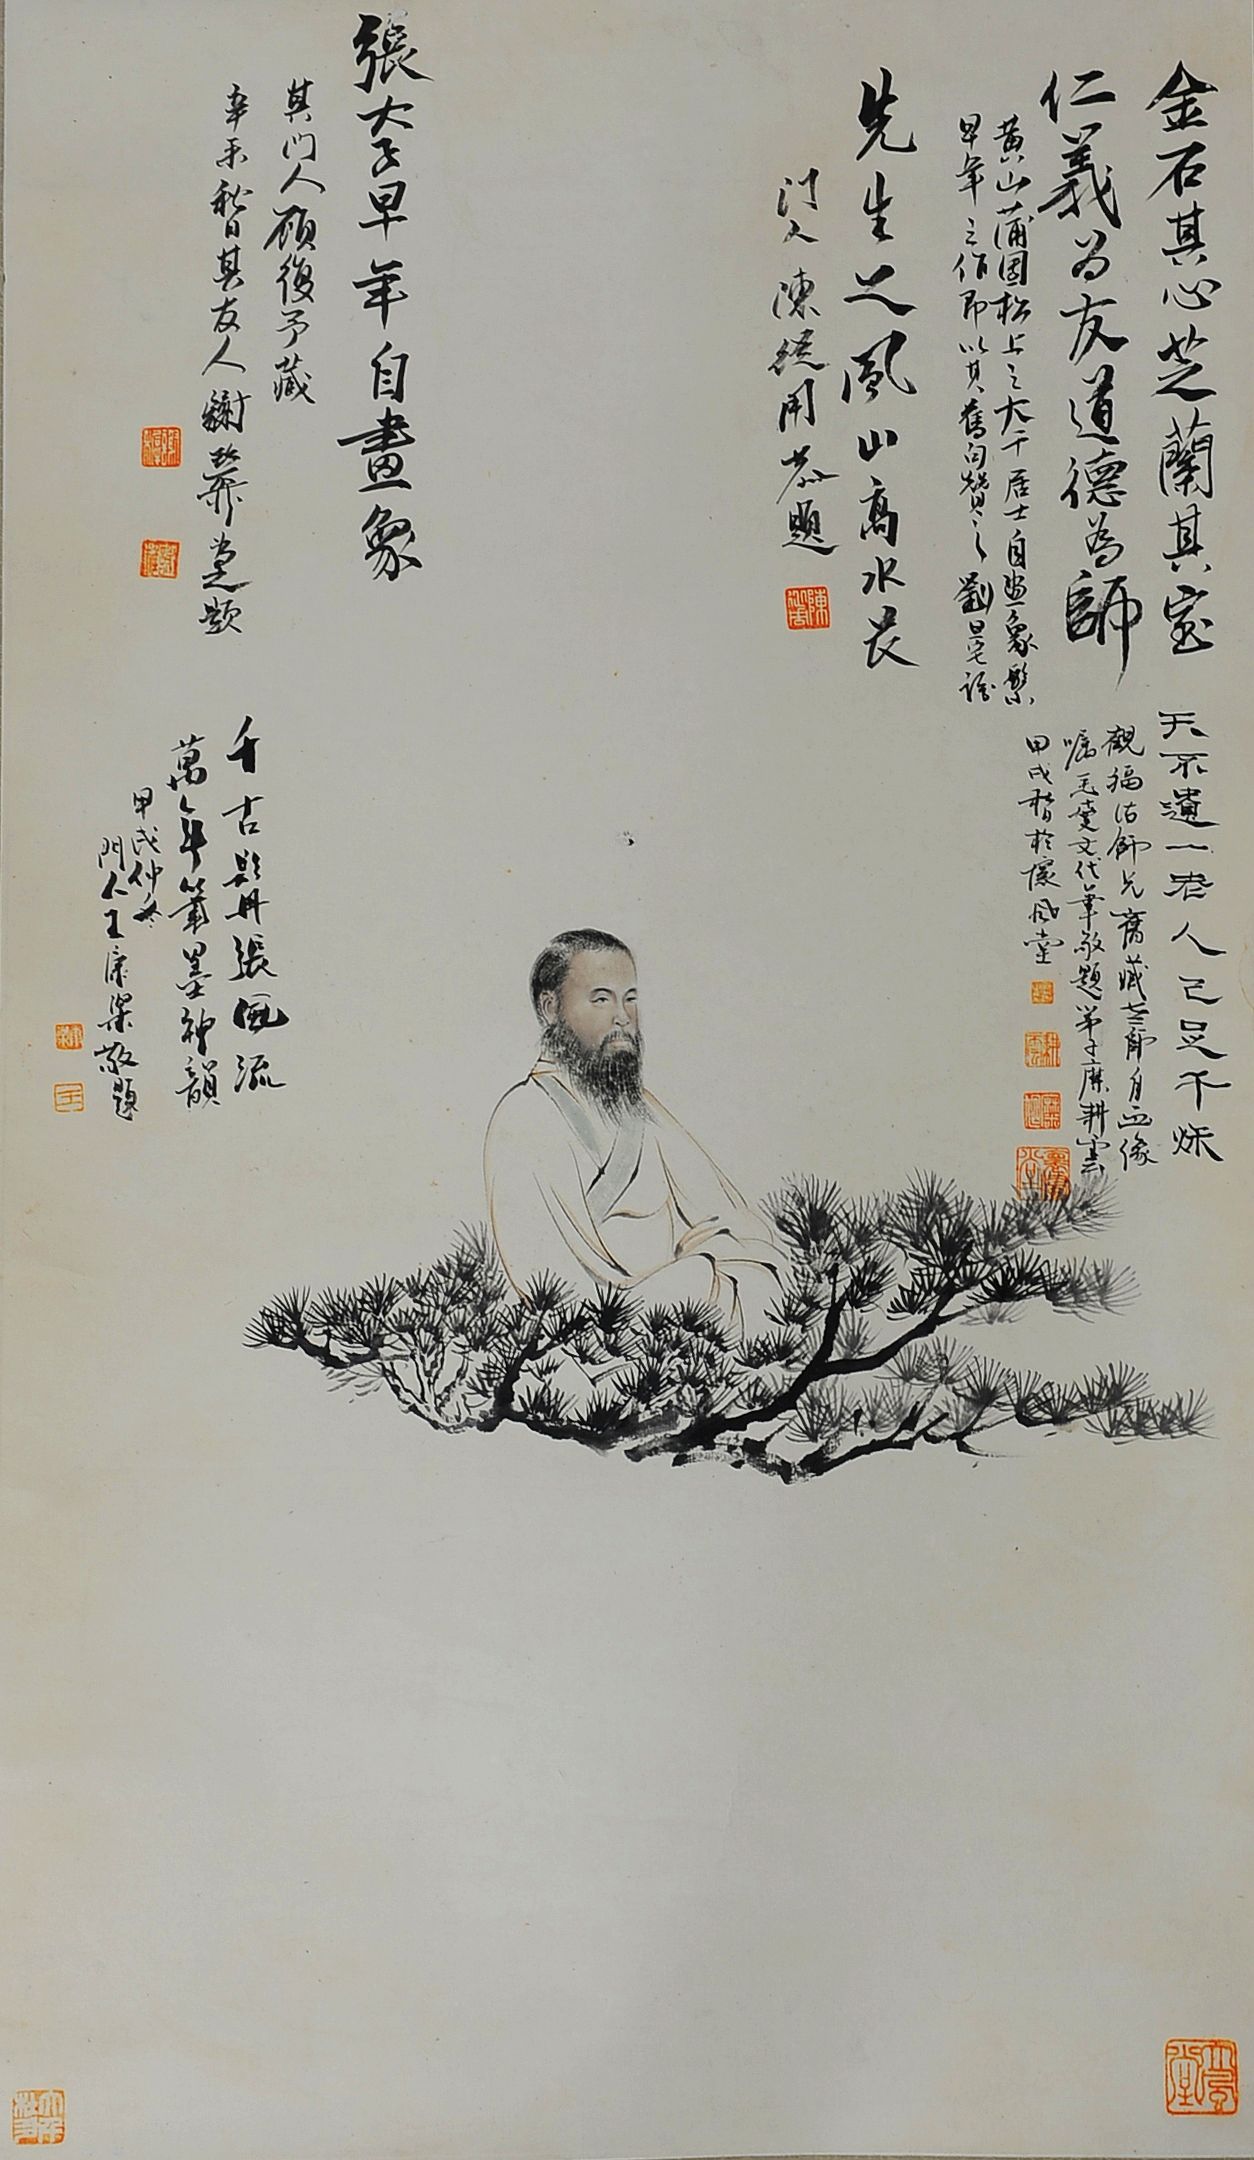 金石其心芝蘭其室
仁義为友道德為師
黃山蒲團松上之大千居士自画象髯
早年之作即以其舊句贊之劉旦宅識
天不遺一老人已足千烁
觀福佑師兄舊藏大千師自画像
嘱毛燮文代筆敬題弟子糜耕雲
甲戌稽於懷風堂
先生之風山高水長
门人陳從周恭題
張大千早年自畫象
其门人顾復予藏
辛未秋日其友人謝稚柳題
千古影冊張風流
萬年筆墨神韻
甲戌仲冬
門人王康樂敬題